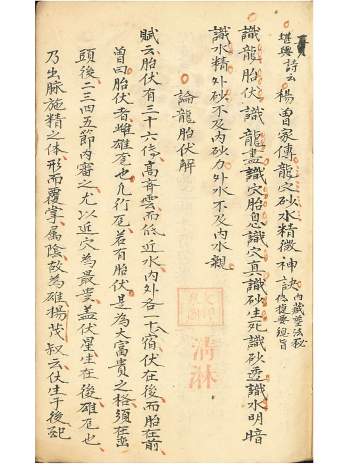 堪輿詩云楊曾家傳龍穴砂水精微神訣內藏葬法秘傳提要總旨
識龍胎伏識龍盡識穴胎息識穴真識砂生死識砂透識水明暗
識水精外砂不及內砂力外水不及內水親
論龍胎伏解
賦云胎伏有三十六侍高齊雲而低近水內外各一十八宿伏在後而胎在前
曾曰胎伏者雌雄龍也凡行龍若有胎伏是為大富貴之格須在巒
頭後二三四五節內審之尤以近穴為最要蓋伏星生在後雄龍也
乃出脉施精之体形而覆掌屬陰故為雄楊筠叔云伏生于後死
清淋